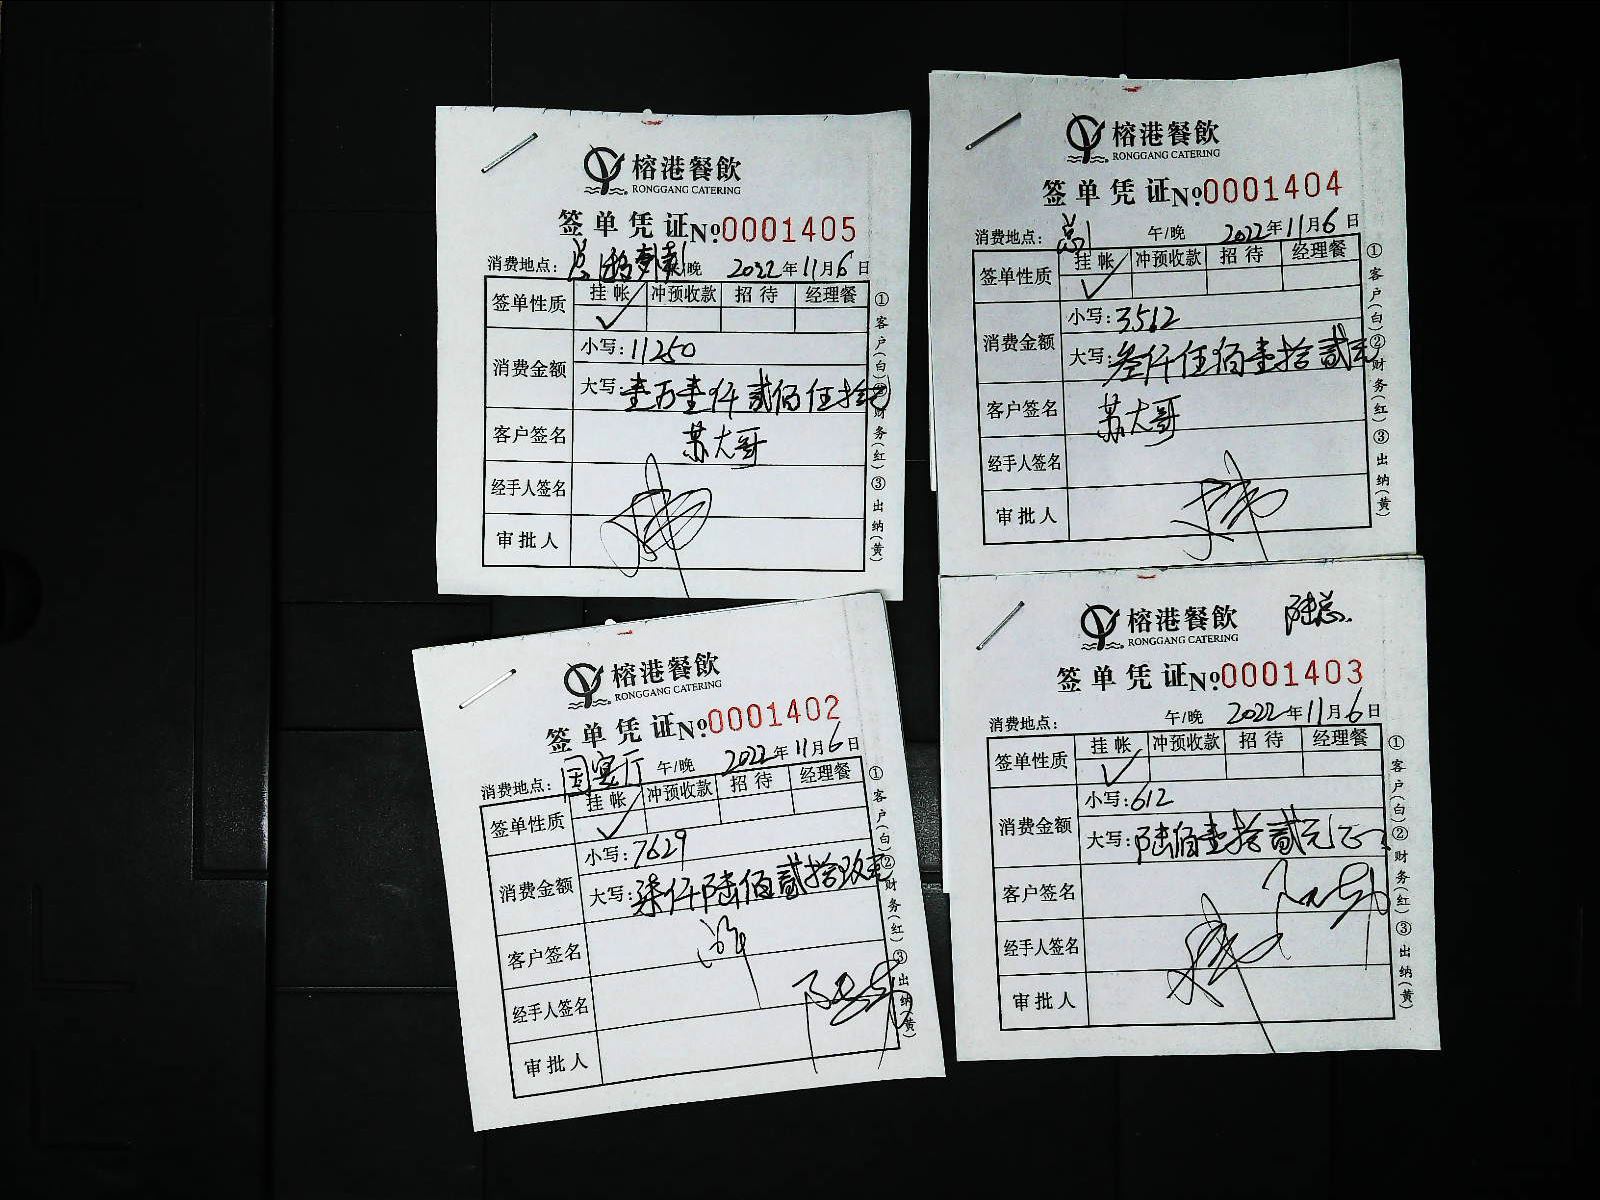 榕港餐飲
RONGGANG CATERING
签单凭证 №0001405
消费地点： 晚 2022年11月6日
签单性质 挂帐 冲预收款 招待 经理餐
✓
消费金额 小写：11250
大写：壹万壹仟贰佰伍拾元
客户签名 苏大哥
经手人签名
审批人
①客户(白)②财务(红)③出纳(黄)
榕港餐飲
RONGGANG CATERING
签单凭证 №0001404
消费地点： 午/晚 2022年11月6日
签单性质 挂帐 冲预收款 招待 经理餐
✓
消费金额 小写：3512
大写：叁仟伍佰壹拾贰元
客户签名 苏大哥
经手人签名
审批人
①客户(白)②财务(红)③出纳(黄)
榕港餐飲
RONGGANG CATERING
签单凭证 №0001402
消费地点：国宴厅 午/晚 2022年11月6日
签单性质 挂帐 冲预收款 招待 经理餐
✓
消费金额 小写：7629
大写：柒仟陆佰贰拾玖元
客户签名
经手人签名
审批人
①客户(白)②财务(红)③出纳(黄)
榕港餐飲 陆总
RONGGANG CATERING
签单凭证 №0001403
消费地点： 午/晚 2022年11月6日
签单性质 挂帐 冲预收款 招待 经理餐
✓
消费金额 小写：612
大写：陆佰壹拾贰元正
客户签名
经手人签名
审批人
①客户(白)②财务(红)③出纳(黄)